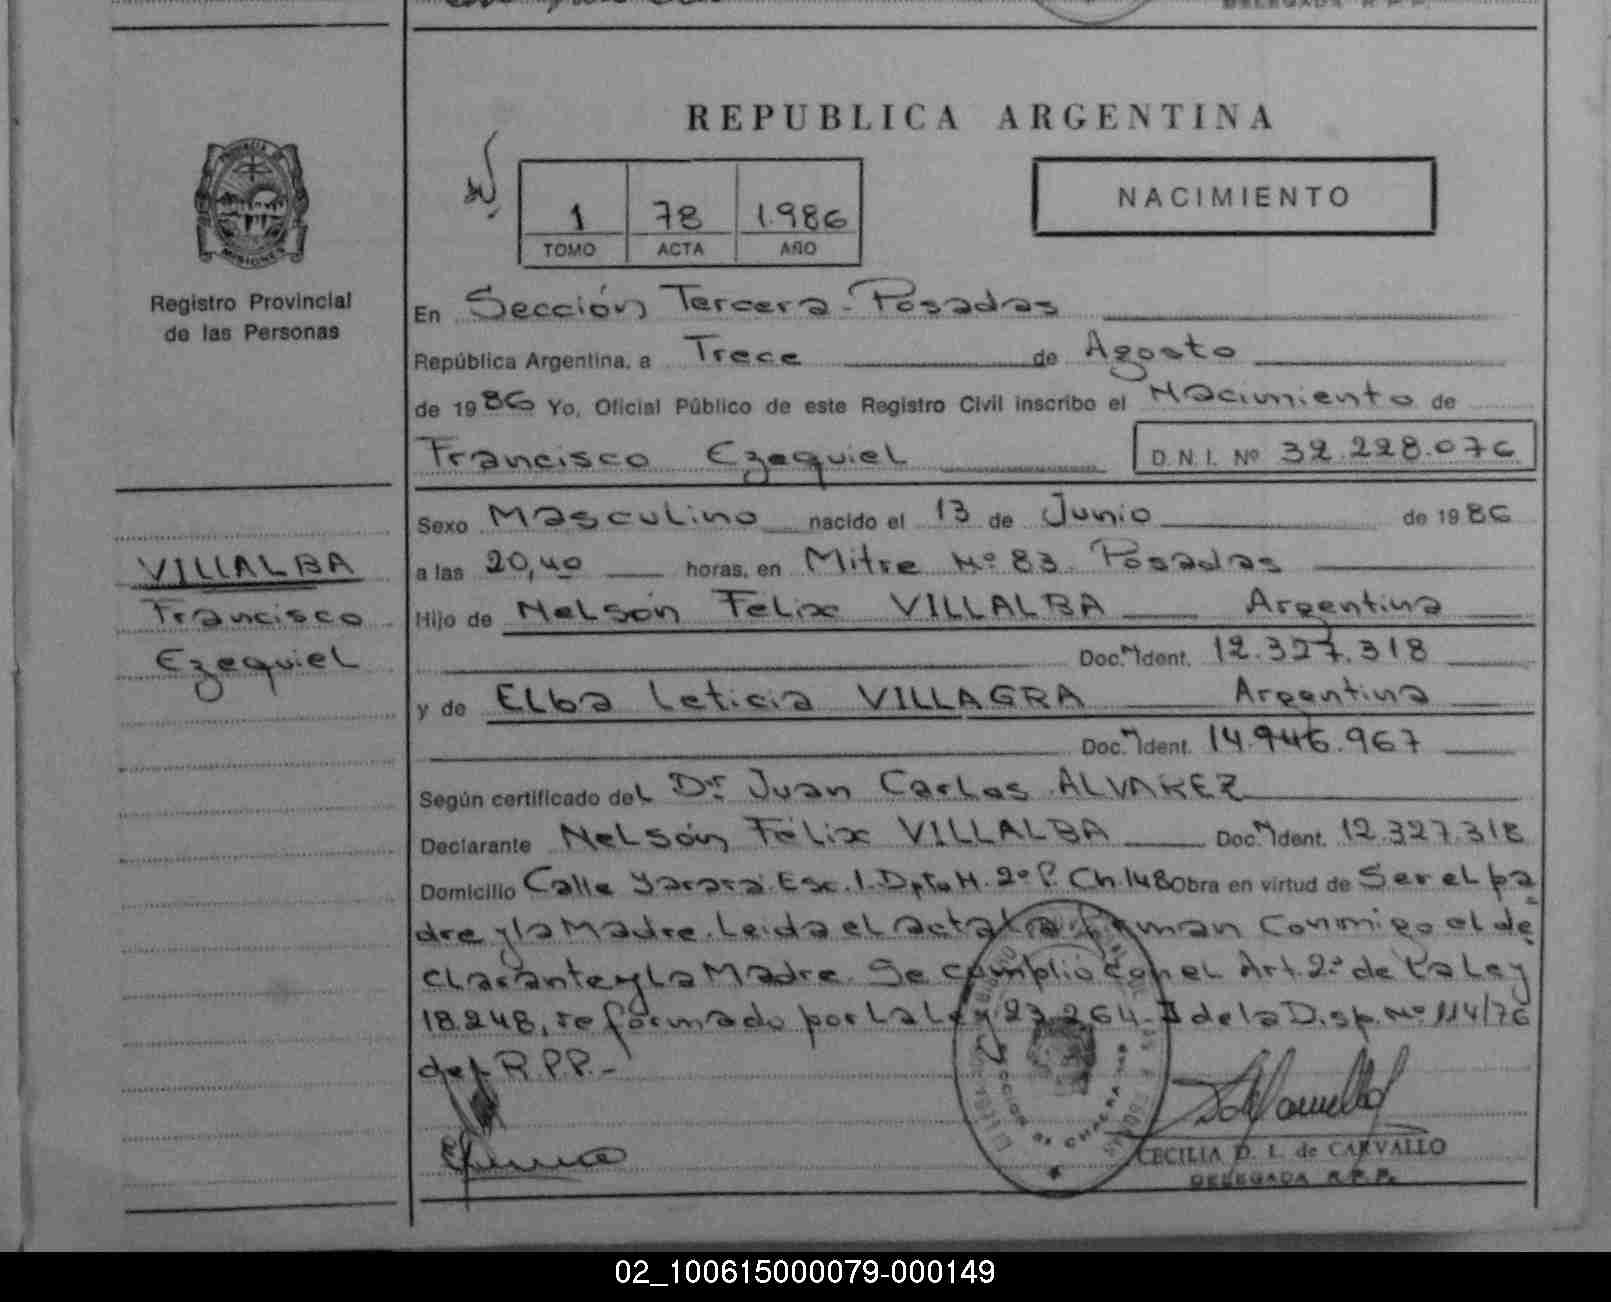 REPUBLICA ARGENTINA
PROVINCIA DE
MISIONES
Registro Provincial
de las Personas
1 78 1.986
TOMO ACTA AÑO
NACIMIENTO
En Sección Tercera-Posadas
República Argentina, a Trece de Agosto
de 1986 Yo, Oficial Público de este Registro Civil inscribo el Nacimiento de
Francisco Ezequiel D.N.I. Nº 32.228.076
Sexo Masculino nacido el 13 de Junio de 1986
VILLALBA
Francisco
Ezequiel
a las 20,40 horas, en Mitre Nº 83 Posadas
Hijo de Nelsón Félix VILLALBA Argentina
Doc. Ident. 12.327.318
y de Elba Leticia VILLAGRA Argentina
Doc. Ident. 14.946.967
Según certificado del Dr Juan Carlos ALVAREZ
Declarante Nelsón Félix VILLALBA Doc. Ident. 12.327.318
Domicilio Calle Yarará Esc. 1. Dpto H. 2º P. Ch. 148 Obra en virtud de Ser el pa
dre y la Madre. Leída el acta la firman Conmigo el de
clarante y la Madre. Se cumplió con el Art. 2º de la Ley
18.248, reformado por la Ley 23.264- I de la Disp. Nº 114/76
del R.P.P.-
CECILIA D. L. de CARVALLO
DELEGADA R.P.P.
02_100615000079-000149